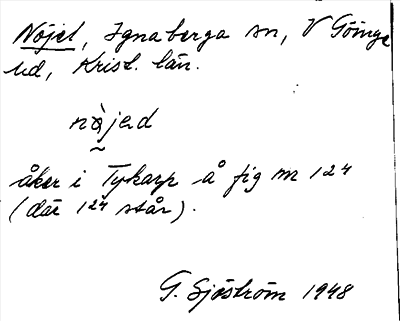 Nöjet, Ignaberga sn, V Göinge
hd, Krist. län.
nòjed
åker i Tykarp å fig nr 124
(där 124 står).
G. Sjöström 1948